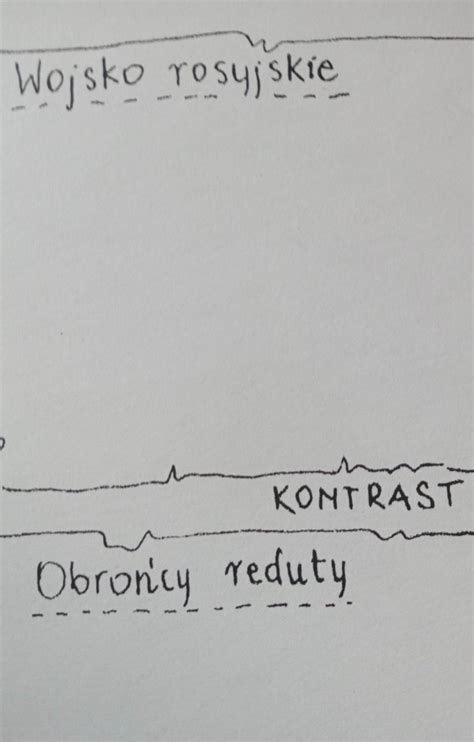 Wojsko rosyjskie
KONTRAST
Obrońcy reduty